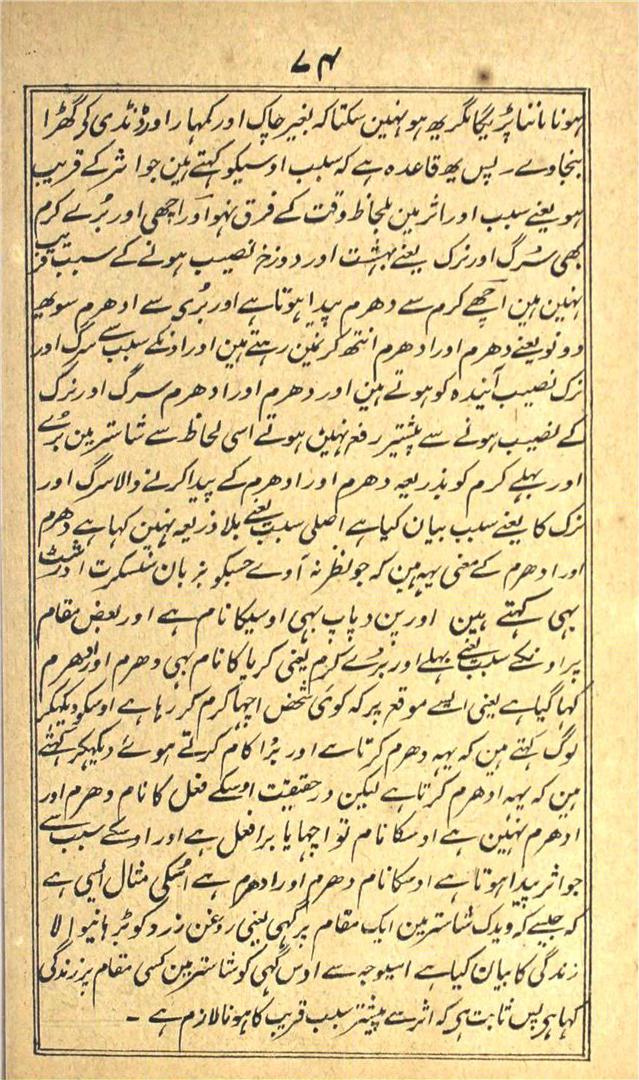 ۷۴
ہونا ماننا پڑیگا مگر یھ ہو نہین سکتا کہ بغیر چاک اور کمہار اور ڈنڈی کی گھڑا
بنجاوے ۔ پس یھ قاعدہ ہے کہ سبب اوسیکو کہتے ہین جو اثر کے قریب
ہو یعنے سبب اور اثر مین بلحاظ وقت کے فرق نہو اور اچھی اور بُرے کرم
بھی سُرگ اور نرک یعنے بہشت اور دوزخ نصیب ہونے کے سبب قریب
نہین ہین اچھے کرم سے دھرم پیدا ہوتا ہے اور بُری سے ادھرم سو یھ
دونو یعنے دھرم اور ادھرم انتھ کرنمین رہتے ہین اور انکے سبب سے سرگ اور
نرک نصیب آیندہ کو ہوتے ہین اور دھرم اور ادھرم سرگ اور نرک
کے نصیب ہونے سے پیشتر رفع نہین ہوتے اسی لحاظ سے شاستر مین بُرے
اور بہلے کرم کو بذریعہ دھرم اور ادھرم کے پیدا کرنے والا سرگ اور
نرک کا یعنے سبب بیان کیا ہے اصلی سبب یعنے بلا ذریعہ نہین کہا ہے دھرم
اور ادھرم کے معنی یہہ ہین کہ جو نظر نہ آوے جسکو بزبان سنسکرت ادرشٹ
بہی کہتے ہین اور پن و پاپ بہی اوسیکا نام ہے اور بعض مقام
پر اونکے سبب یعنے بہلے اور بُرے کرم یعنی کریا کا نام بہی دھرم اور ادھرم
کہا گیا ہے یعنی ایسے موقع پر کہ کوئی شخص اچہا کرم کر رہا ہے اوسکو دیکہکر
لوگ کہتے ہین کہ یہہ دھرم کرتا ہے اور بُرا کام کرتے ہوئے دیکہکر کہتے
ہین کہ یہہ ادھرم کرتا ہے لیکن درحقیقت اوسکے فعل کا نام دھرم اور
ادھرم نہین ہے اوسکا نام تو اچہا یا برا فعل ہے اور اوسکے سبب سے
جو اثر پیدا ہوتا ہے اوسکا نام دھرم اور ادھرم ہے اسکی مثال ایسی ہے
کہ جیسے کہ ویدک شاستر مین ایک مقام پر گہی یعنی روغن زرد کو بڑہانیوالا
زندگی کا بیان کیا ہے اسیوجہ سے اوس گہی کو شاستر مین کسی مقام پر زندگی
کہا ہی پس ثابت ہی کہ اثر سے پیشتر سبب قریب کا ہونا لازم ہے ۔